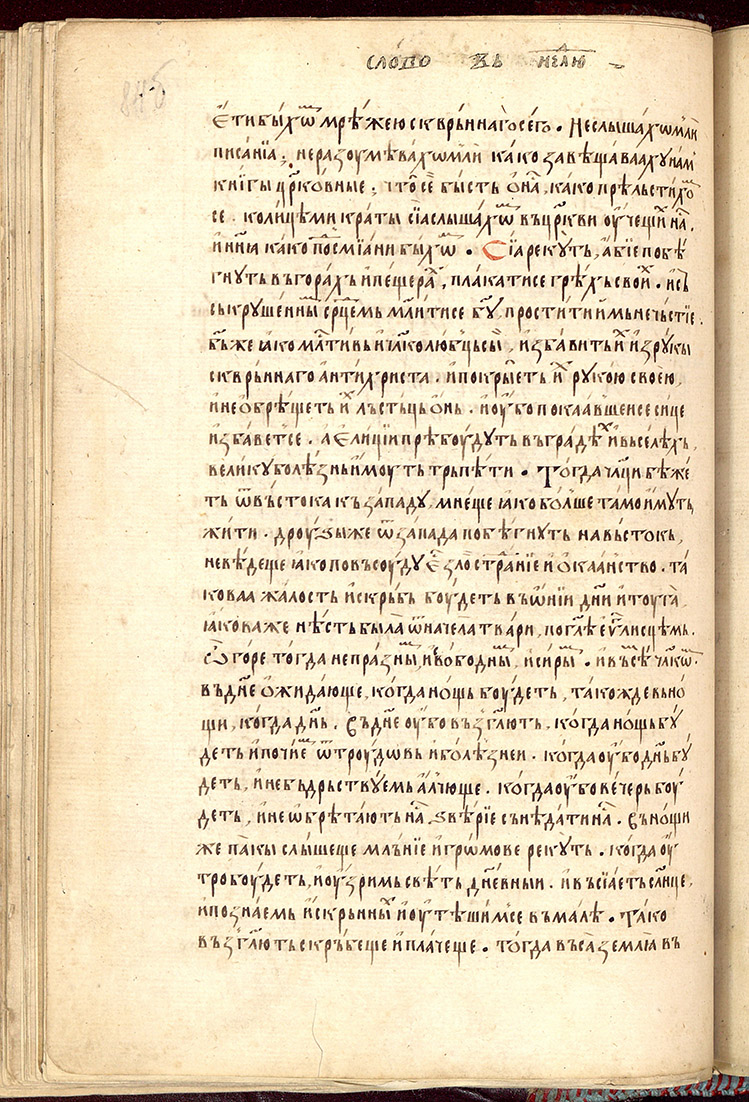 слово въ нелю
84б
ети быхѡ мрѣжею скврьннаго сего . Не слышахѡ ли
писанїа ; не разоумѣвахѡ ли како завѣщавааху нам
книгы црковные ; что се бысть ѡна , како прѣльстихѡ
се . колицѣми краты сїа слышахѡ въ цркви оучещїи на .
и нина како посмїани быхѡ . Сїа рекуть , абїе побѣ
гнуть въ горахъ и пещера , плакати се грѣхъ свои . и съ
съкрушенны срцемь млити се бгу , простити имь нечьстїе .
бъ же iако млтивь и члколюбць сы , избавить и из рукы
скврьннаго антихриста . и покрыеть и рукою своею ,
и не обрѣщеть и льстьць онь . и оубо покаавшеи се сице
избавет се . а елиции прѣбоудуть въ градѣ и въ селехъ ,
велику болѣзнь имоуть трьпѣти . Тогда члци бѣже
ть ѿ въстока къ западу , мнеще iако болше тамо имуть
жити . дроузыже ѿ запада побѣгнуть на въстокь ,
не вѣдеще iако по въсоуду е зло странїе и окаанство . та
коваа жалость и скрьбь боудеть въ ѡнїи дни и тоуга ,
iаковаже нѣсть была ѿ начела твари , по глѣ еѵглисцѣмь .
Ѡ горе тогда непразны , и свободны , и сиры . и въсѣ члкѡ .
въ дне ожидающе , когда нощь боудеть , такожде въ но
щи , когда днь . Въ дне оубо възглють , когда нощь бу
деть и почие ѿ троудовь и болѣзнеи . когда оубо днь бу
деть , и не бьдрьствуемь алчюще . когда оубо вечерь боу
деть , и не ѡбрѣтають на звѣрїе сънѣдати на . Въ нощи
же пакы слышеще млънїе и громове рекуть . когда оу
тро боудеть , и оузримь свѣть дневныи . и въсїаеть слнце ,
и познаемь искрьнны и оутѣшим се въ малѣ . Тако
възглють скрьбеще и плачеще . тогда въса землiа въ